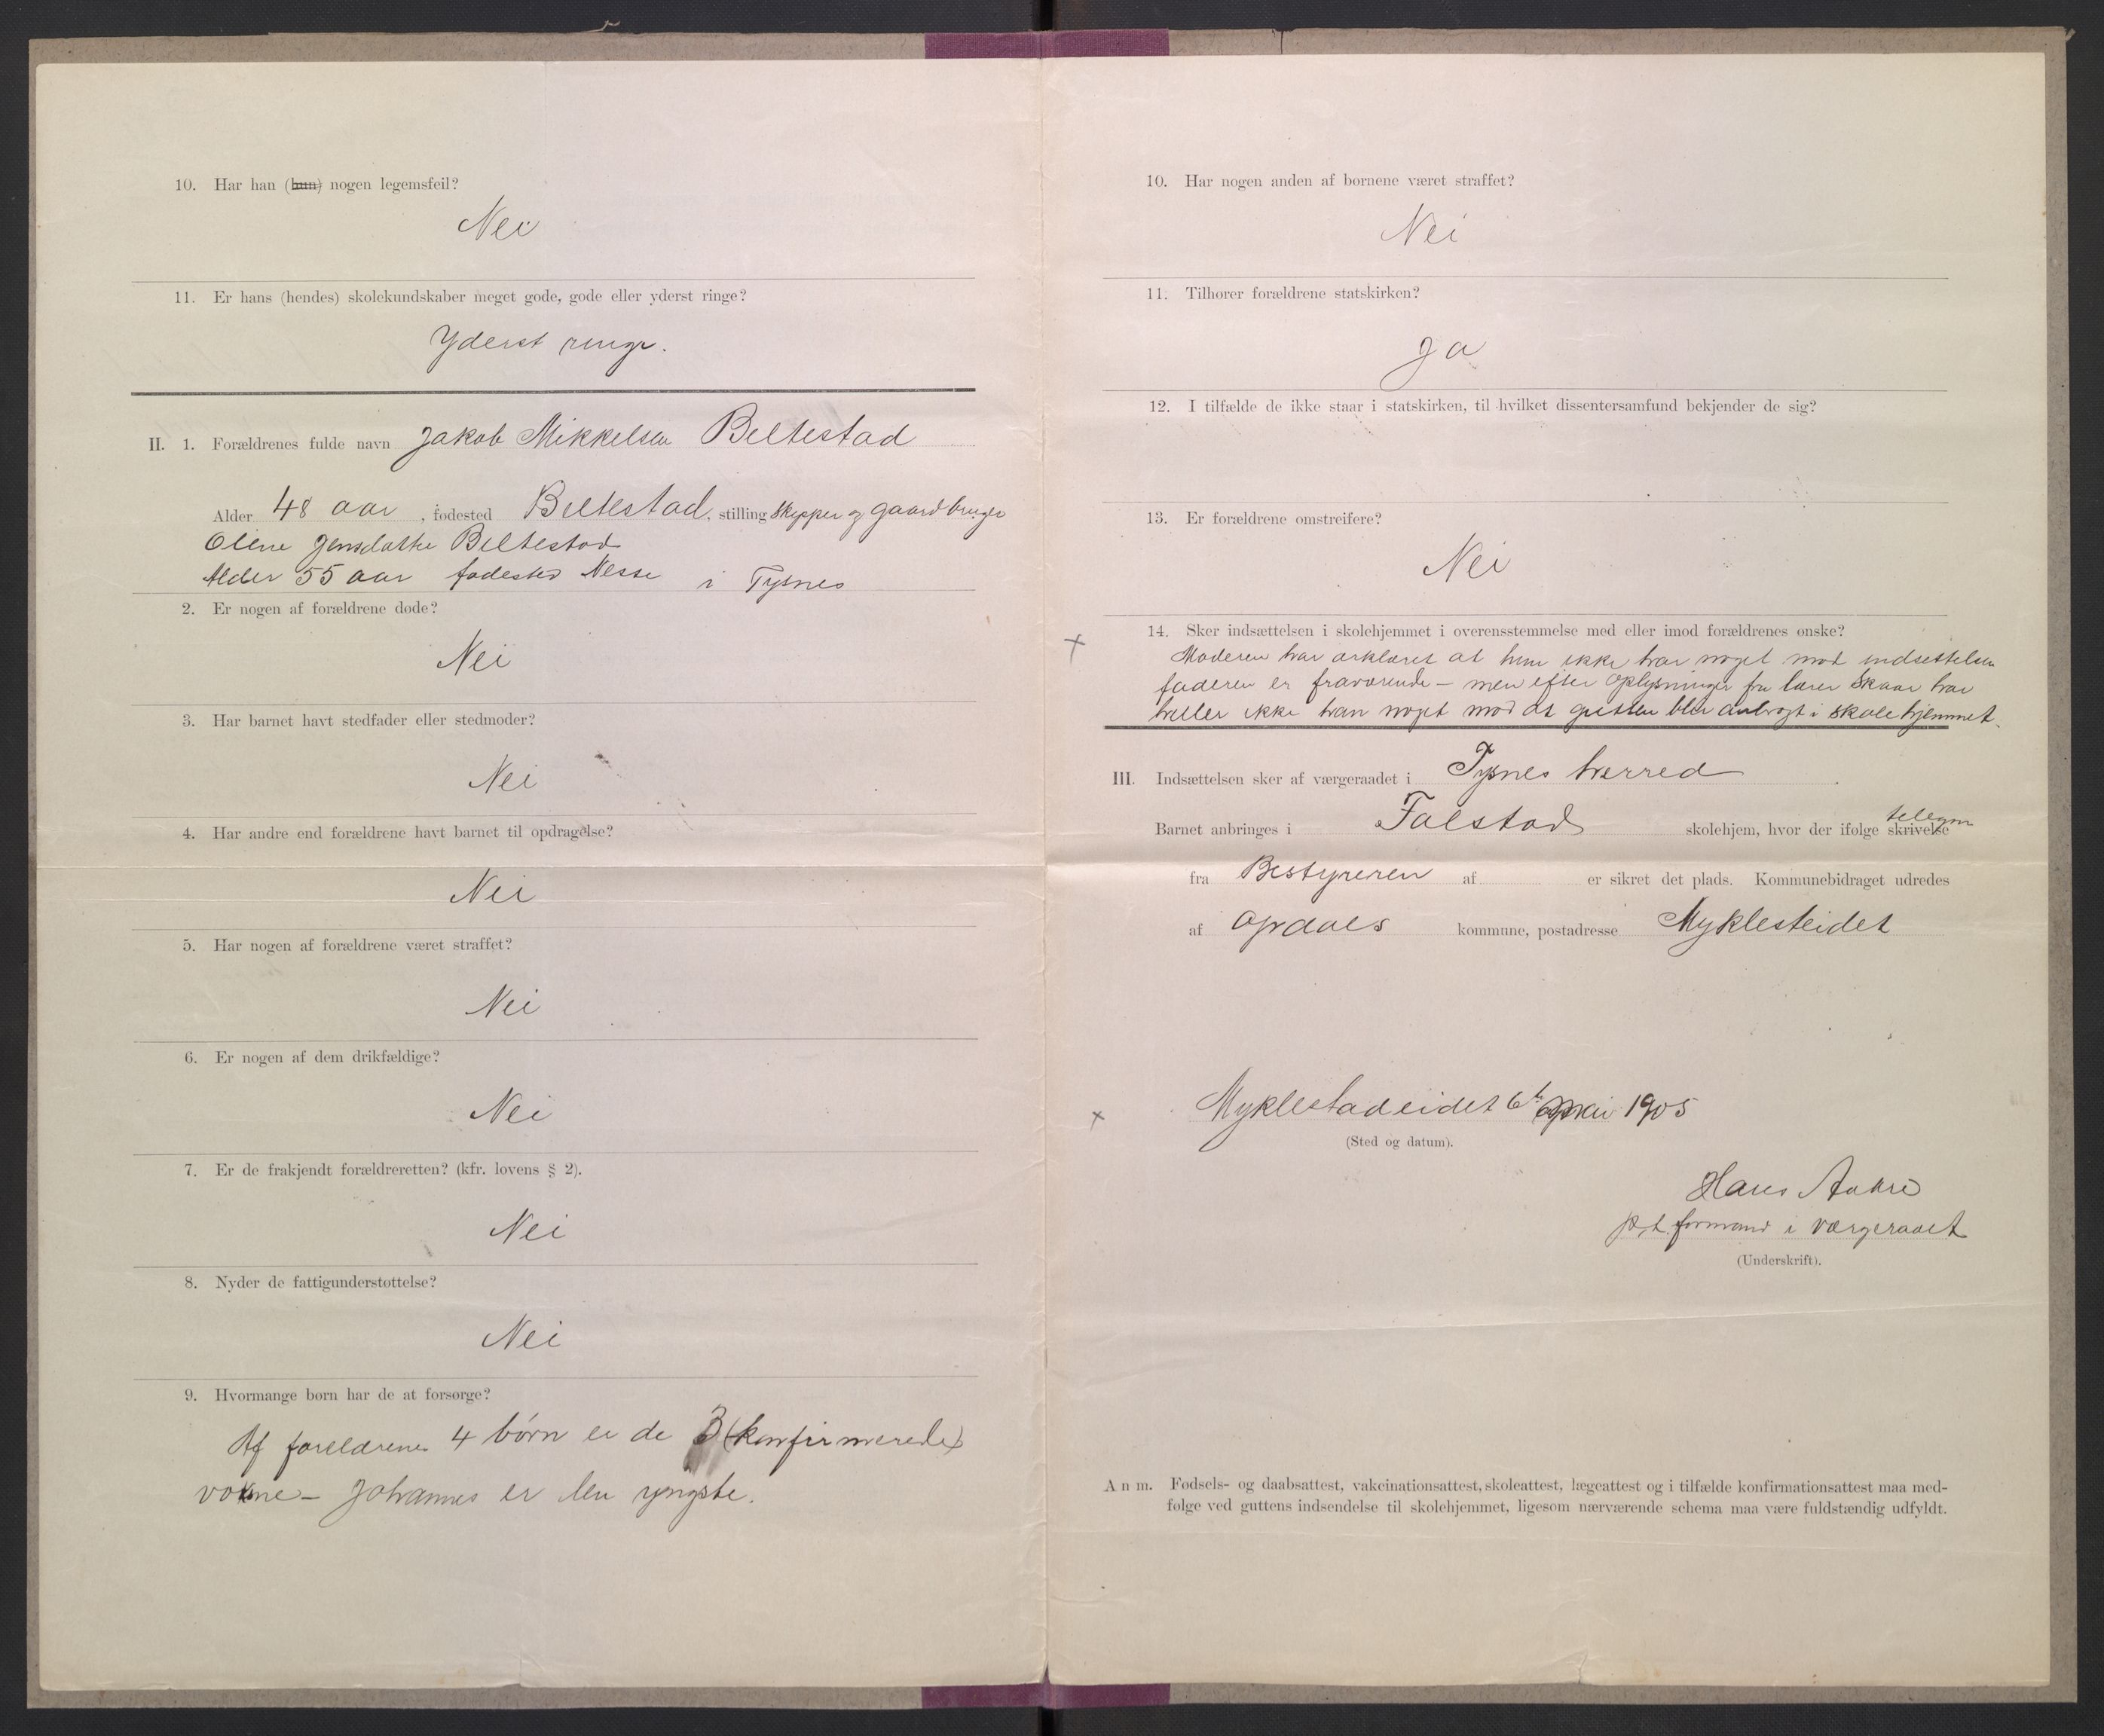 10. Har han (hun) nogen legemsfeil?
Nei
11. Er hans (hendes) skolekundskaber meget gode, gode eller yderst ringe?
Yderst ringe.
II. 1. Forældrenes fulde navn Jakob Mikkelsen Beltestad
Alder 48 aar, fødested Beltestad, stilling skipper og gaardbruger
Oline Jensdatter Beltestad
Alder 55 aar fødested Nesse i Tysnes
2. Er nogen af forældrene døde?
Nei
3. Har barnet havt stedfader eller stedmoder?
Nei
4. Har andre end forældrene havt barnet til opdragelse?
Nei
5. Har nogen af forældrene været straffet?
Nei
6. Er nogen af dem drikfældige?
Nei
7. Er de frakjendt forældreretten? (kfr. lovens § 2).
Nei
8. Nyder de fattigunderstøttelse?
Nei
9. Hvormange børn har de at forsørge?
Af forældrenes 4 børn er de 3 (konfirmerede)
voxne – Johannes er den yngste.
10. Har nogen anden af børnene været straffet?
Nei
11. Tilhører forældrene statskirken?
Ja
12. I tilfælde de ikke staar i statskirken, til hvilket dissentersamfund bekjender de sig?
13. Er forældrene omstreifere?
Nei
14. Sker indsættelsen i skolehjemmet i overensstemmelse med eller imod forældrenes ønske?
Moderen har erklæret at hun ikke har noget mod indsettelsen
faderen er fraværende – men efter oplysninger fra lærer Skaar har
heller ikke han noget mod at gutten blir anbragt i skolehjemmet.
III. Indsættelsen sker af værgeraadet i Tysnes herred
Barnet anbringes i Falstad skolehjem, hvor der ifølge skrivelse telegm
fra Bestyreren af er sikret det plads. Kommunebidraget udredes
af Opdals kommune, postadresse Myklesteidet
Myklestadeidet 6te mai 1905
(Sted og datum).
Hans Aakre
p.t. formand i værgeraadet
(Underskrift).
Anm. Fødsels- og daabsattest, vakcinationsattest, skoleattest, lægeattest og i tilfælde konfirmationsattest maa med-
følge ved guttens indsendelse til skolehjemmet, ligesom nærværende schema maa være fuldstændig udfyldt.